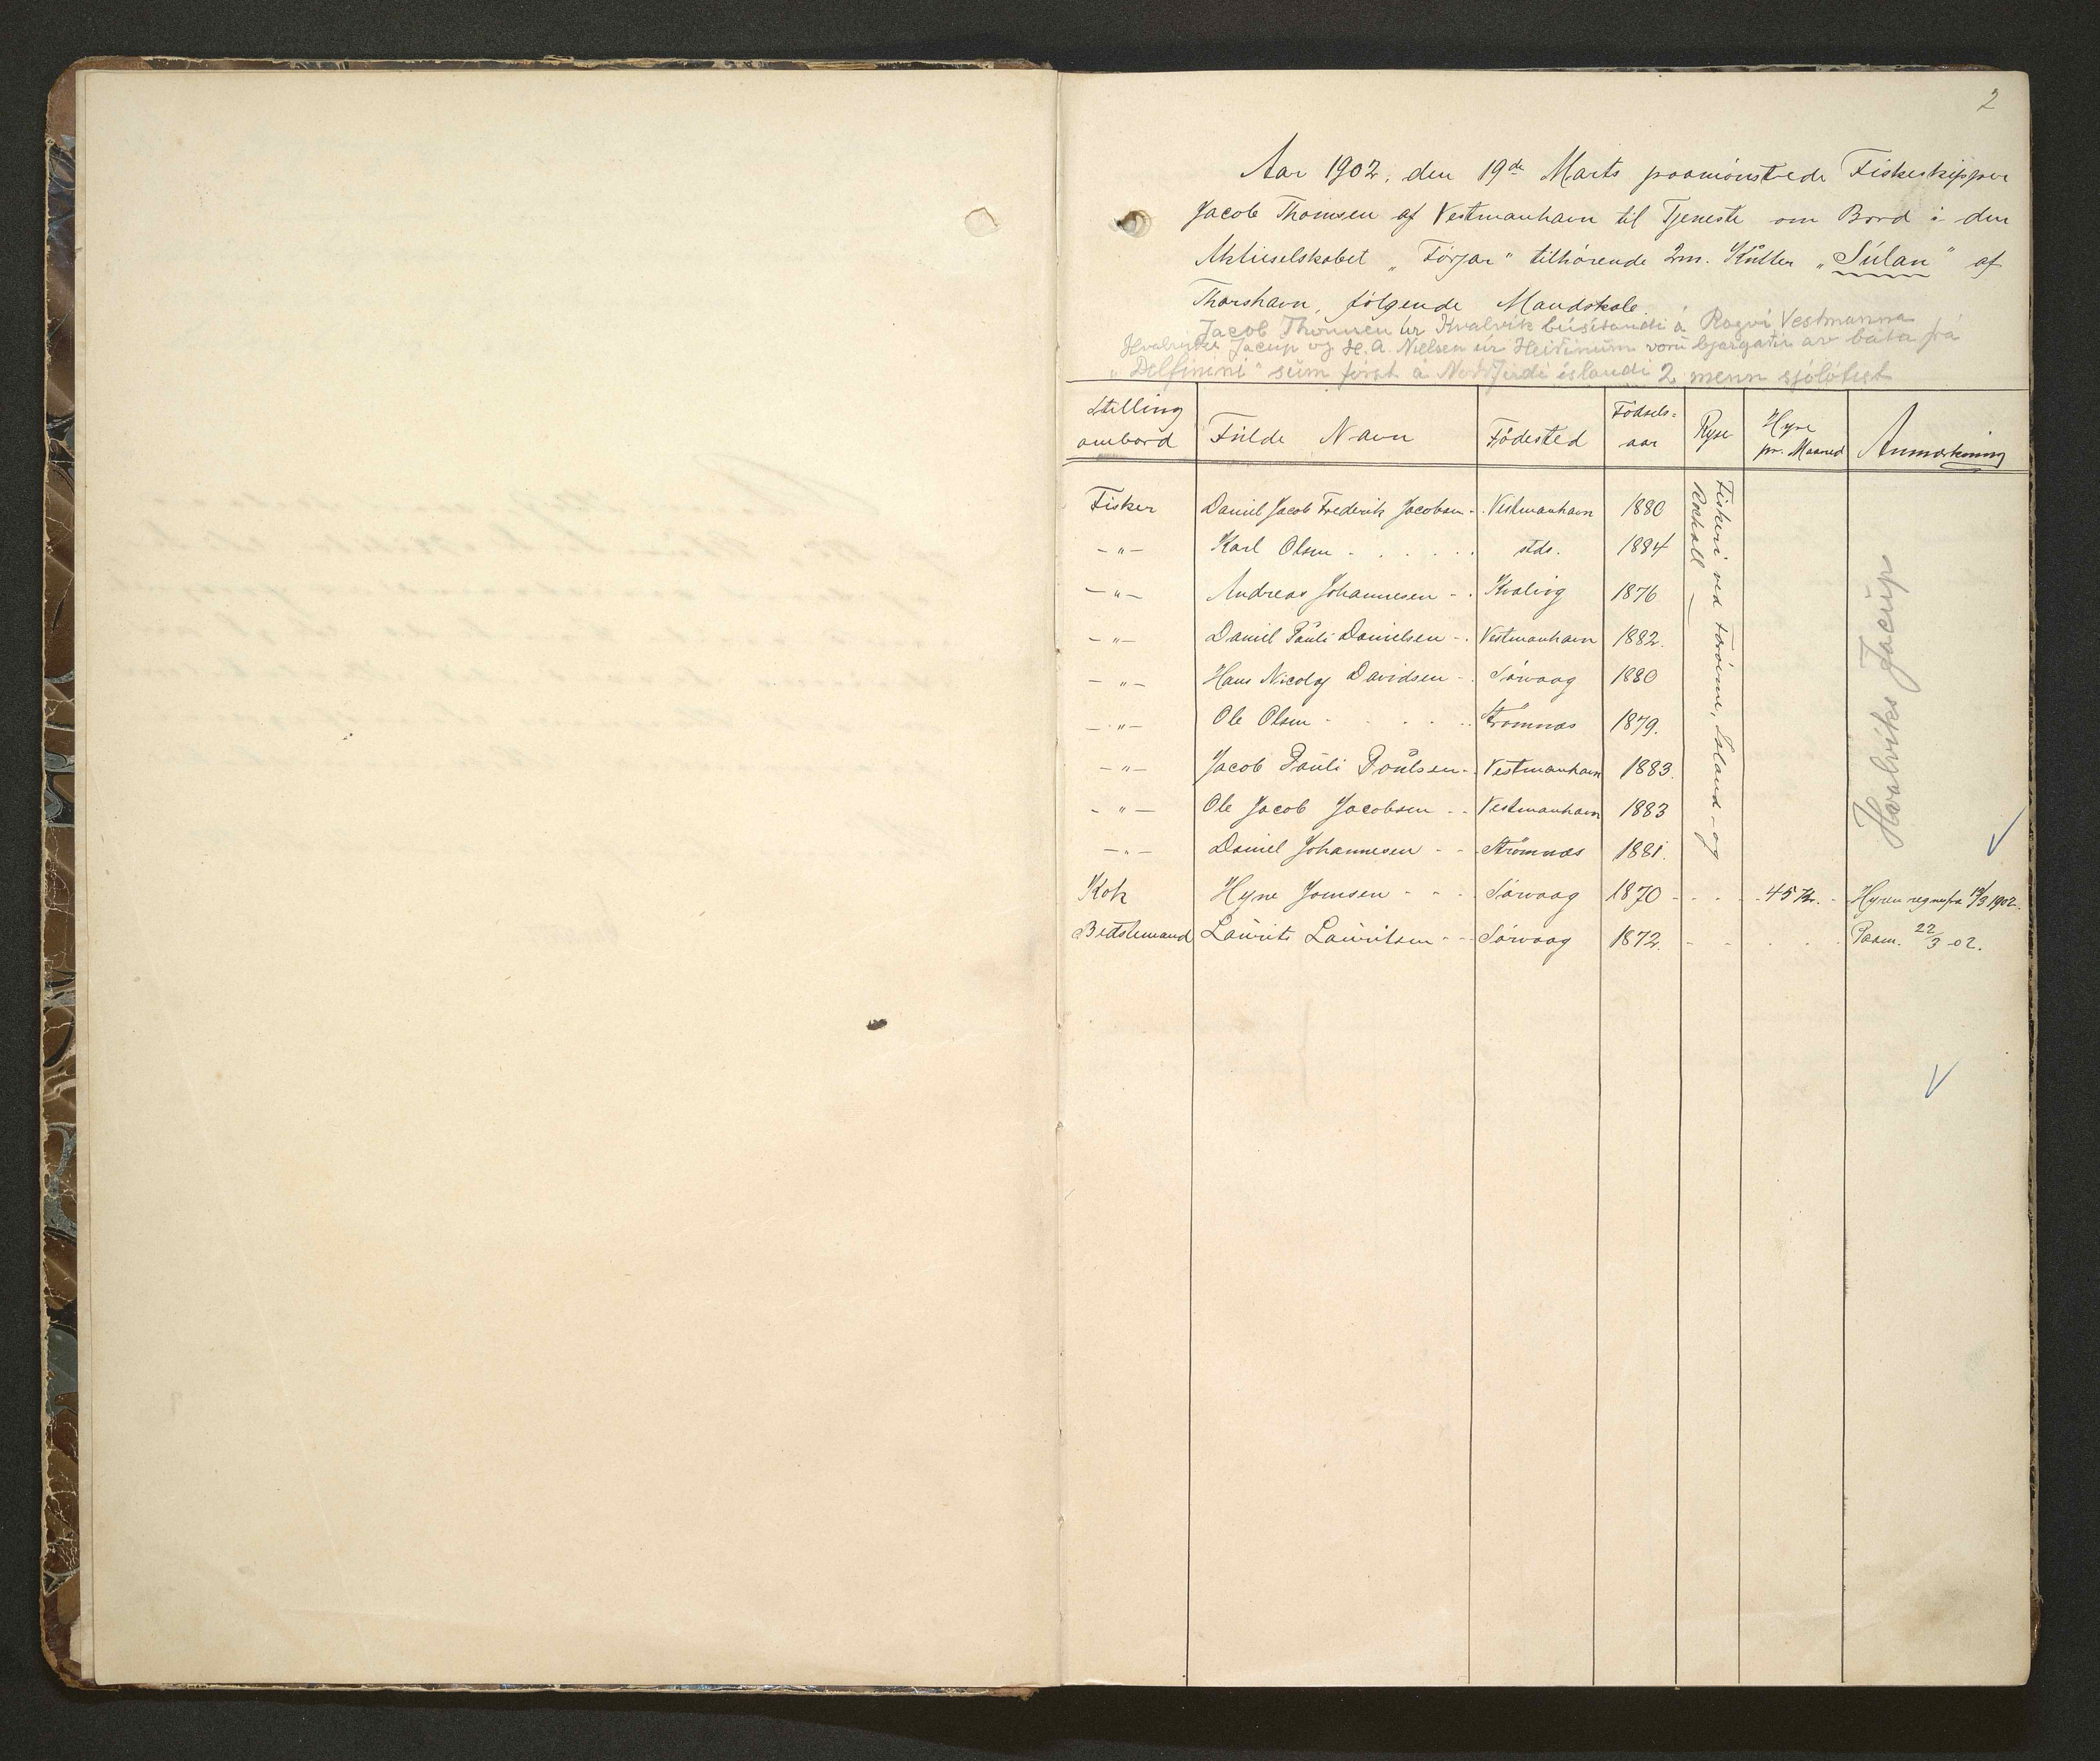 2
Aar 1902, den 19de Marts paamönstrede Fiskeskipper
Jacob Thomsen af Vestmanhavn til Tjeneste om Bord i den
Aktieselskabet „Förjar" tilhörende 2m. Kutter „Súlan" af
Thorshavn, følgende Mandskab.
Jacob Thomsen úr Kvalvík búsitandi á Vestmanna
Hvalvíks Jacup og H. A. Nielsen úr Heiðinum voru bjargaðir av báta frá
„Delfinini" sum fórst á Norðfirdi íslandi 2 menn sjólótist
Stilling ombord | Fulde Navn | Födested | Födselsaar | Rejse | Hyre pr. Maaned | Anmærkning
Fisker Daniel Jacob Frederik Jacobsen - Vestmanhavn 1880
— " — Karl Olsen - stds. 1884
— " — Andreas Johannesen - Kvalvig 1876
— " — Daniel Pauli Danielsen - Vestmanhavn 1882.
— " — Hans Nicolaj Davidsen - Sörvaag 1880
— " — Ole Olsen - Strömnæs 1879.
— " — Jacob Pauli Poulsen - Vestmanhavn 1883.
— " — Ole Jacob Jacobsen - - Vestmanhavn 1883
— " — Daniel Johannesen - - Strömnæs 1881.
Kok Hyne Joensen - - Sörvaag 1870 - 45 Kr. - Hyren regnes fra 19/3 1902.
Bedstemand Laurits Lauritsen - - Sörvaag 1872. - - Paam. 22/3 - 02.
Fiskeri ved Færöerne, Island - og
Rockall —
Hvalvíks Jacup